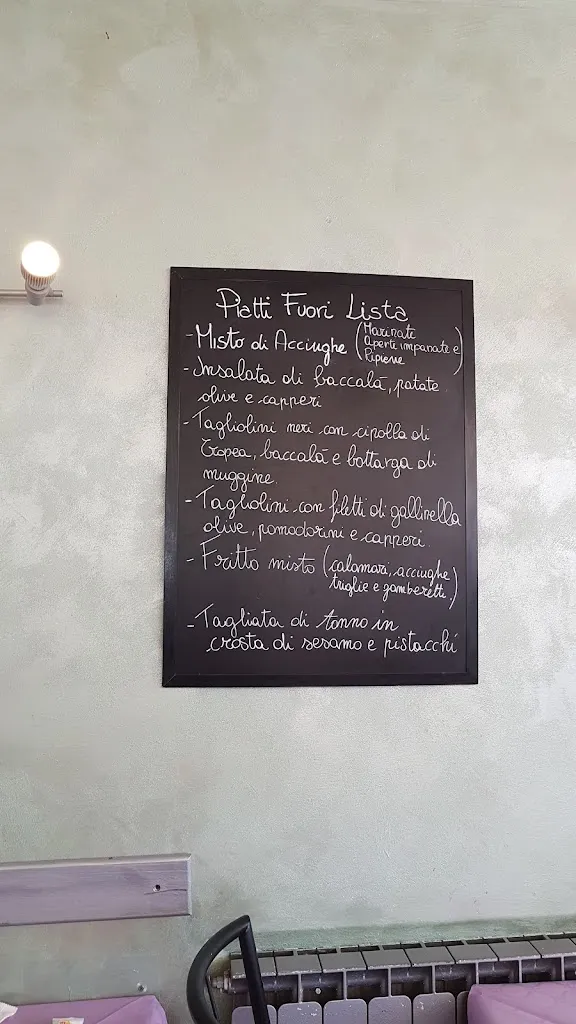 Piatti Fuori Lista
- Misto di Acciughe (Marinate
Aperte impanate e
Ripiene)
- Insalata di baccalà, patate
olive e capperi
- Tagliolini neri con cipolla di
Tropea, baccalà e bottarga di
muggine.
- Tagliolini con filetti di gallinella
olive, pomodorini e capperi.
- Fritto misto (calamari, acciughe
triglie e gamberetti.)
- Tagliata di tonno in
crosta di sesamo e pistacchi